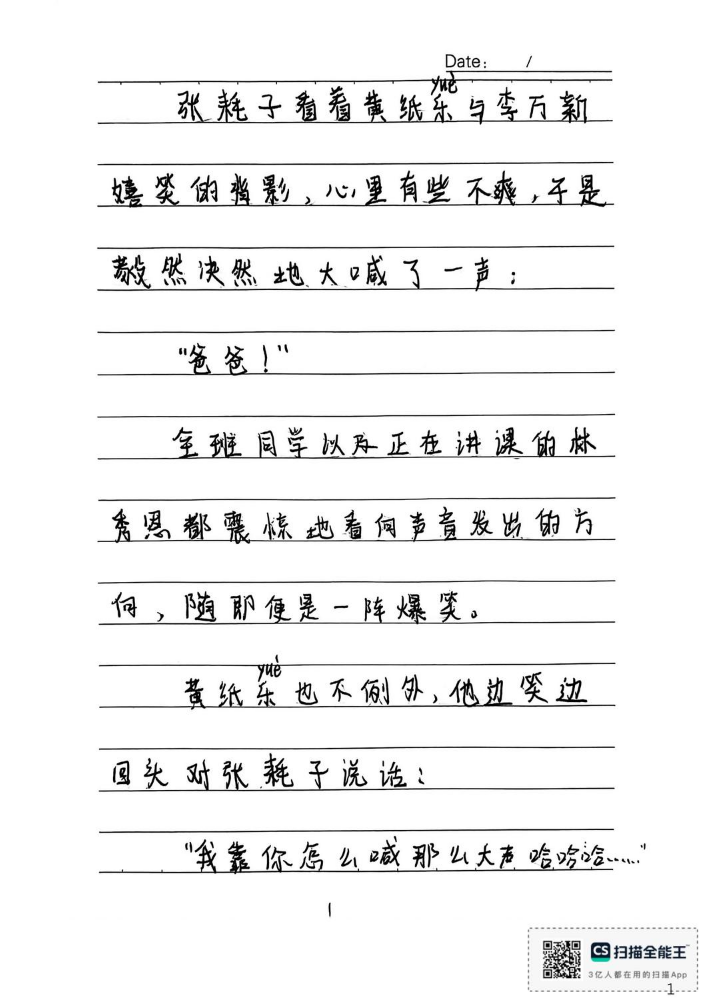 Date: /
yuè
张耗子看着黄纸乐与李万新
嬉笑的背影,心里有些不爽,于是
毅然决然地大喊了一声:
"爸爸!"
全班同学以及正在讲课的林
秀恩都震惊地看向声音发出的方
向,随即便是一阵爆笑。
yuè
黄纸乐也不例外,他边笑边
回头对张耗子说话:
"我靠你怎么喊那么大声哈哈哈……"
1
CS 扫描全能王™
3亿人都在用的扫描App
1